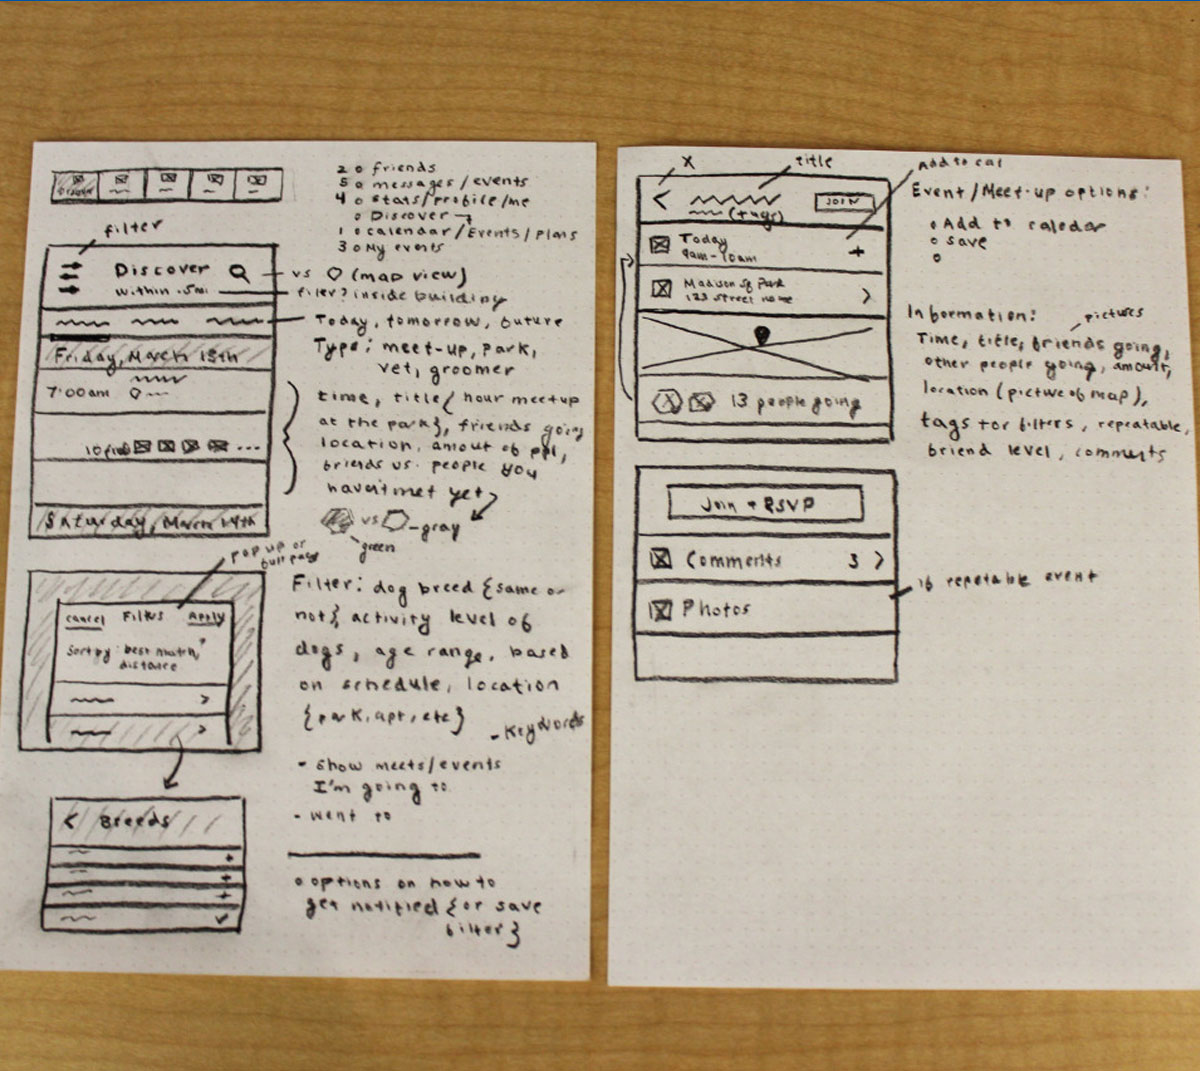 2 o friends
5 o messages/events
4 o stats/profile/me
o Discover
1 o calendar/Events/Plans
3 o My events
filter
Discover
within .5mi
vs (map view)
filer? inside building
Today, tomorrow, future
Type: meet-up, park,
vet, groomer
Friday, March 13th
7:00am
time, title{hour meetup
at the park}, friends going
location, amout of ppl,
friends vs. people you
haven't met yet
vs - gray
green
Saturday, March 14th
pop up or
full page
cancel Filters Apply
Sort by: best match,
distance
Filter: dog breed {same or
not}, activity level of
dogs, age range, based
on schedule, location
{park, apt, etc}
- Keywords
- show meets/events
I'm going to
- went to
< Breeds
o options on how to
get notified {or save
filter}
X
title
Add to cal
< (tags) JOIN
Today
9am-10am +
Madison Sq Park
123 street name >
13 people going
Event/Meet-up options:
o Add to caledar
o save
o
Information:
pictures
Time, title, friends going,
other people going, amount,
location (picture of map),
tags for filters, repeatable,
friend level, comments
Join + RSVP
Comments 3 >
Photos
if repetable event